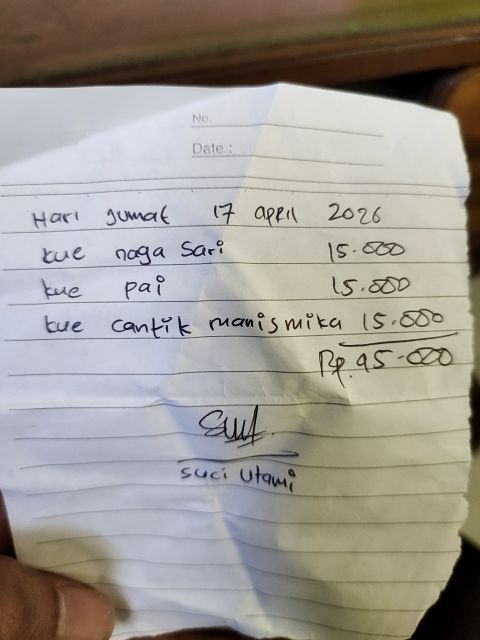 No.
Date :
Hari Jumat 17 april 2026
kue naga Sari 15.000
kue pai 15.000
kue cantik manis mika 15.000
Rp. 45.000
suci utami